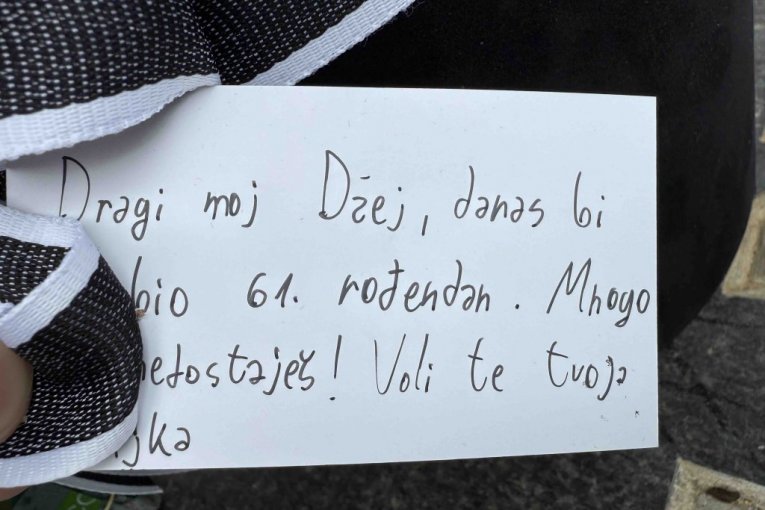 Dragi moj Džej, danas bi
bio 61. rođendan. Mnogo
nedostaješ! Voli te tvoja